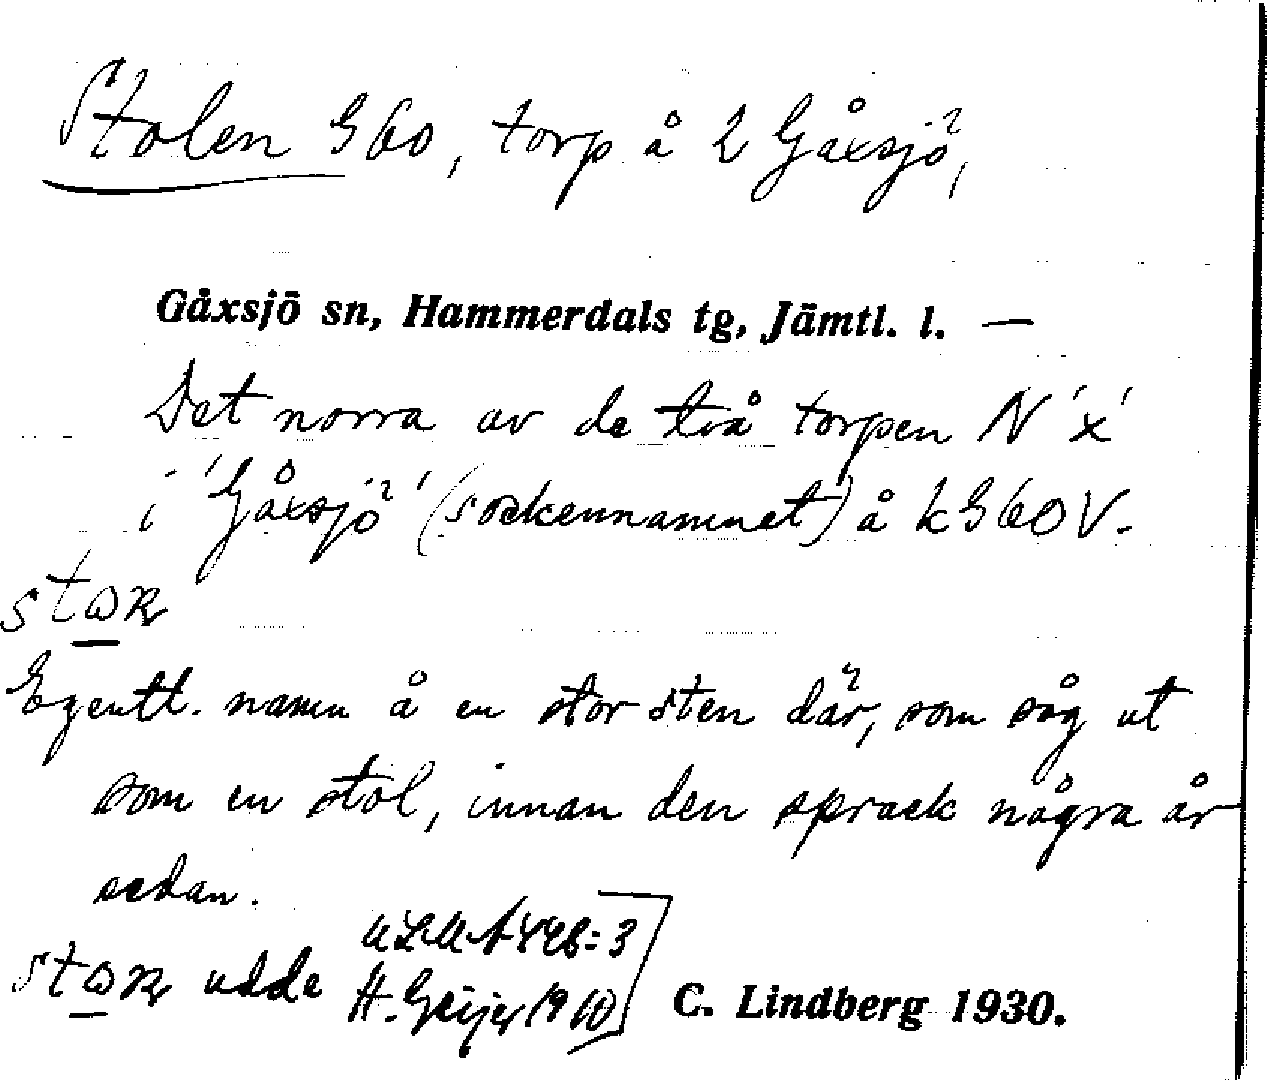 Stolen 360, torp å 2 Gåxsjö,
Gåxsjö sn, Hammerdals tg, Jämtl. l. —
Det norra av de två torpen N 'x'
i 'Gåxsjö' (sockennamnet) å k 360 V.
Egentl. namn å en stor sten där, som såg ut
som en stol, innan den sprack några år
sedan.
udde H. Geijer 1910
C. Lindberg 1930.